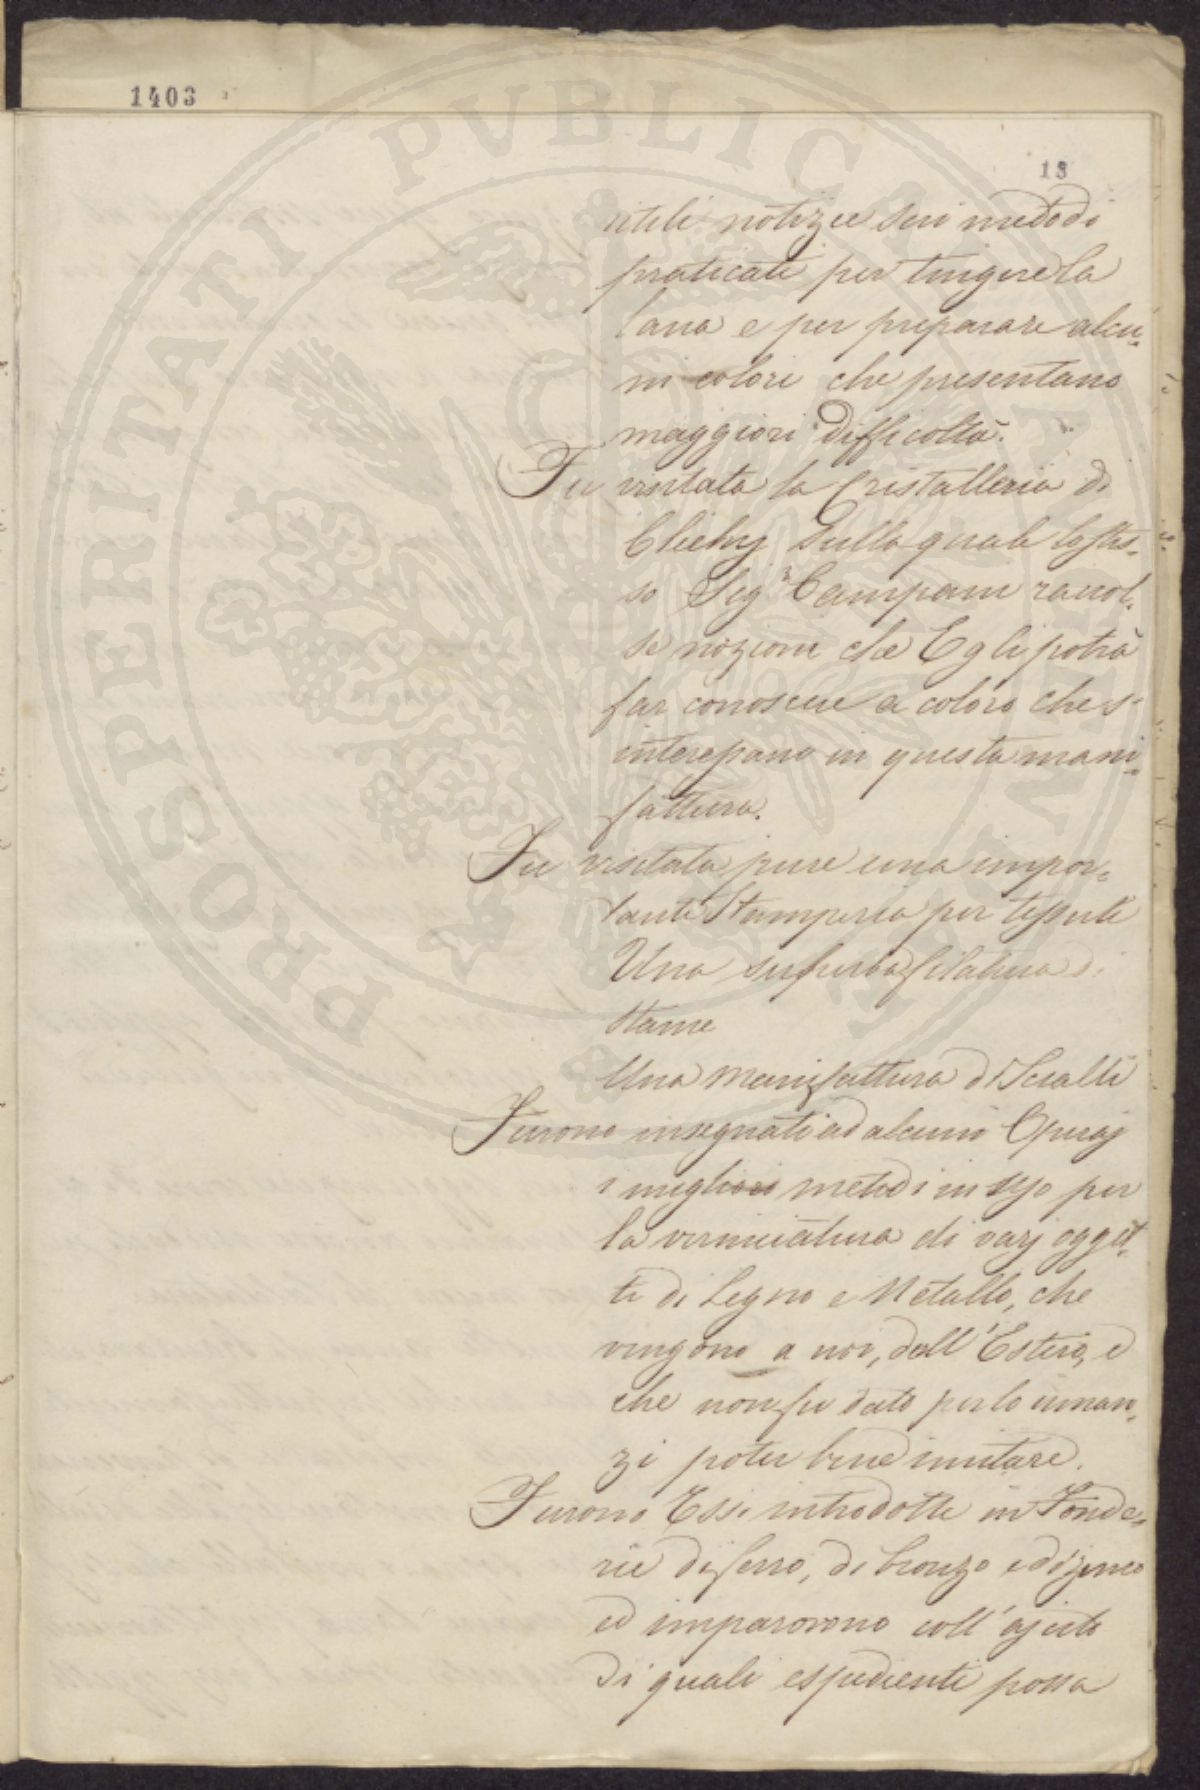 1403
13
utili notizie sui metodi
praticati per tingere la
lana e per preparare alcu-
ni colori che presentano
maggiori difficoltà.
Fu visitata la Cristalleria di
Clichy sulla quale lo stes-
so Sig.r Campani raccol-
se nozioni che Egli potrà
far conoscere a coloro che s'
interessano in questa mani-
fattura.
Fu visitata pure una impor-
tante Stamperia per tessuti
Una superba filatura di
Stame
Una manifattura di Scialli
Furono insegnati ad alcuni Operaj
i migliori metodi in uso per
la verniciatura di varj ogget-
ti di Legno e Metallo, che
vengono a noi, dall'Estero, e
che non fu dato per lo innan-
zi poter bene imitare.
Furono Essi introdotti in Fonde-
rie di ferro, di bronzo e di zinco
ed impararono coll'ajuto
di quali espedienti possa
PROSPERITATI PVBLICAE